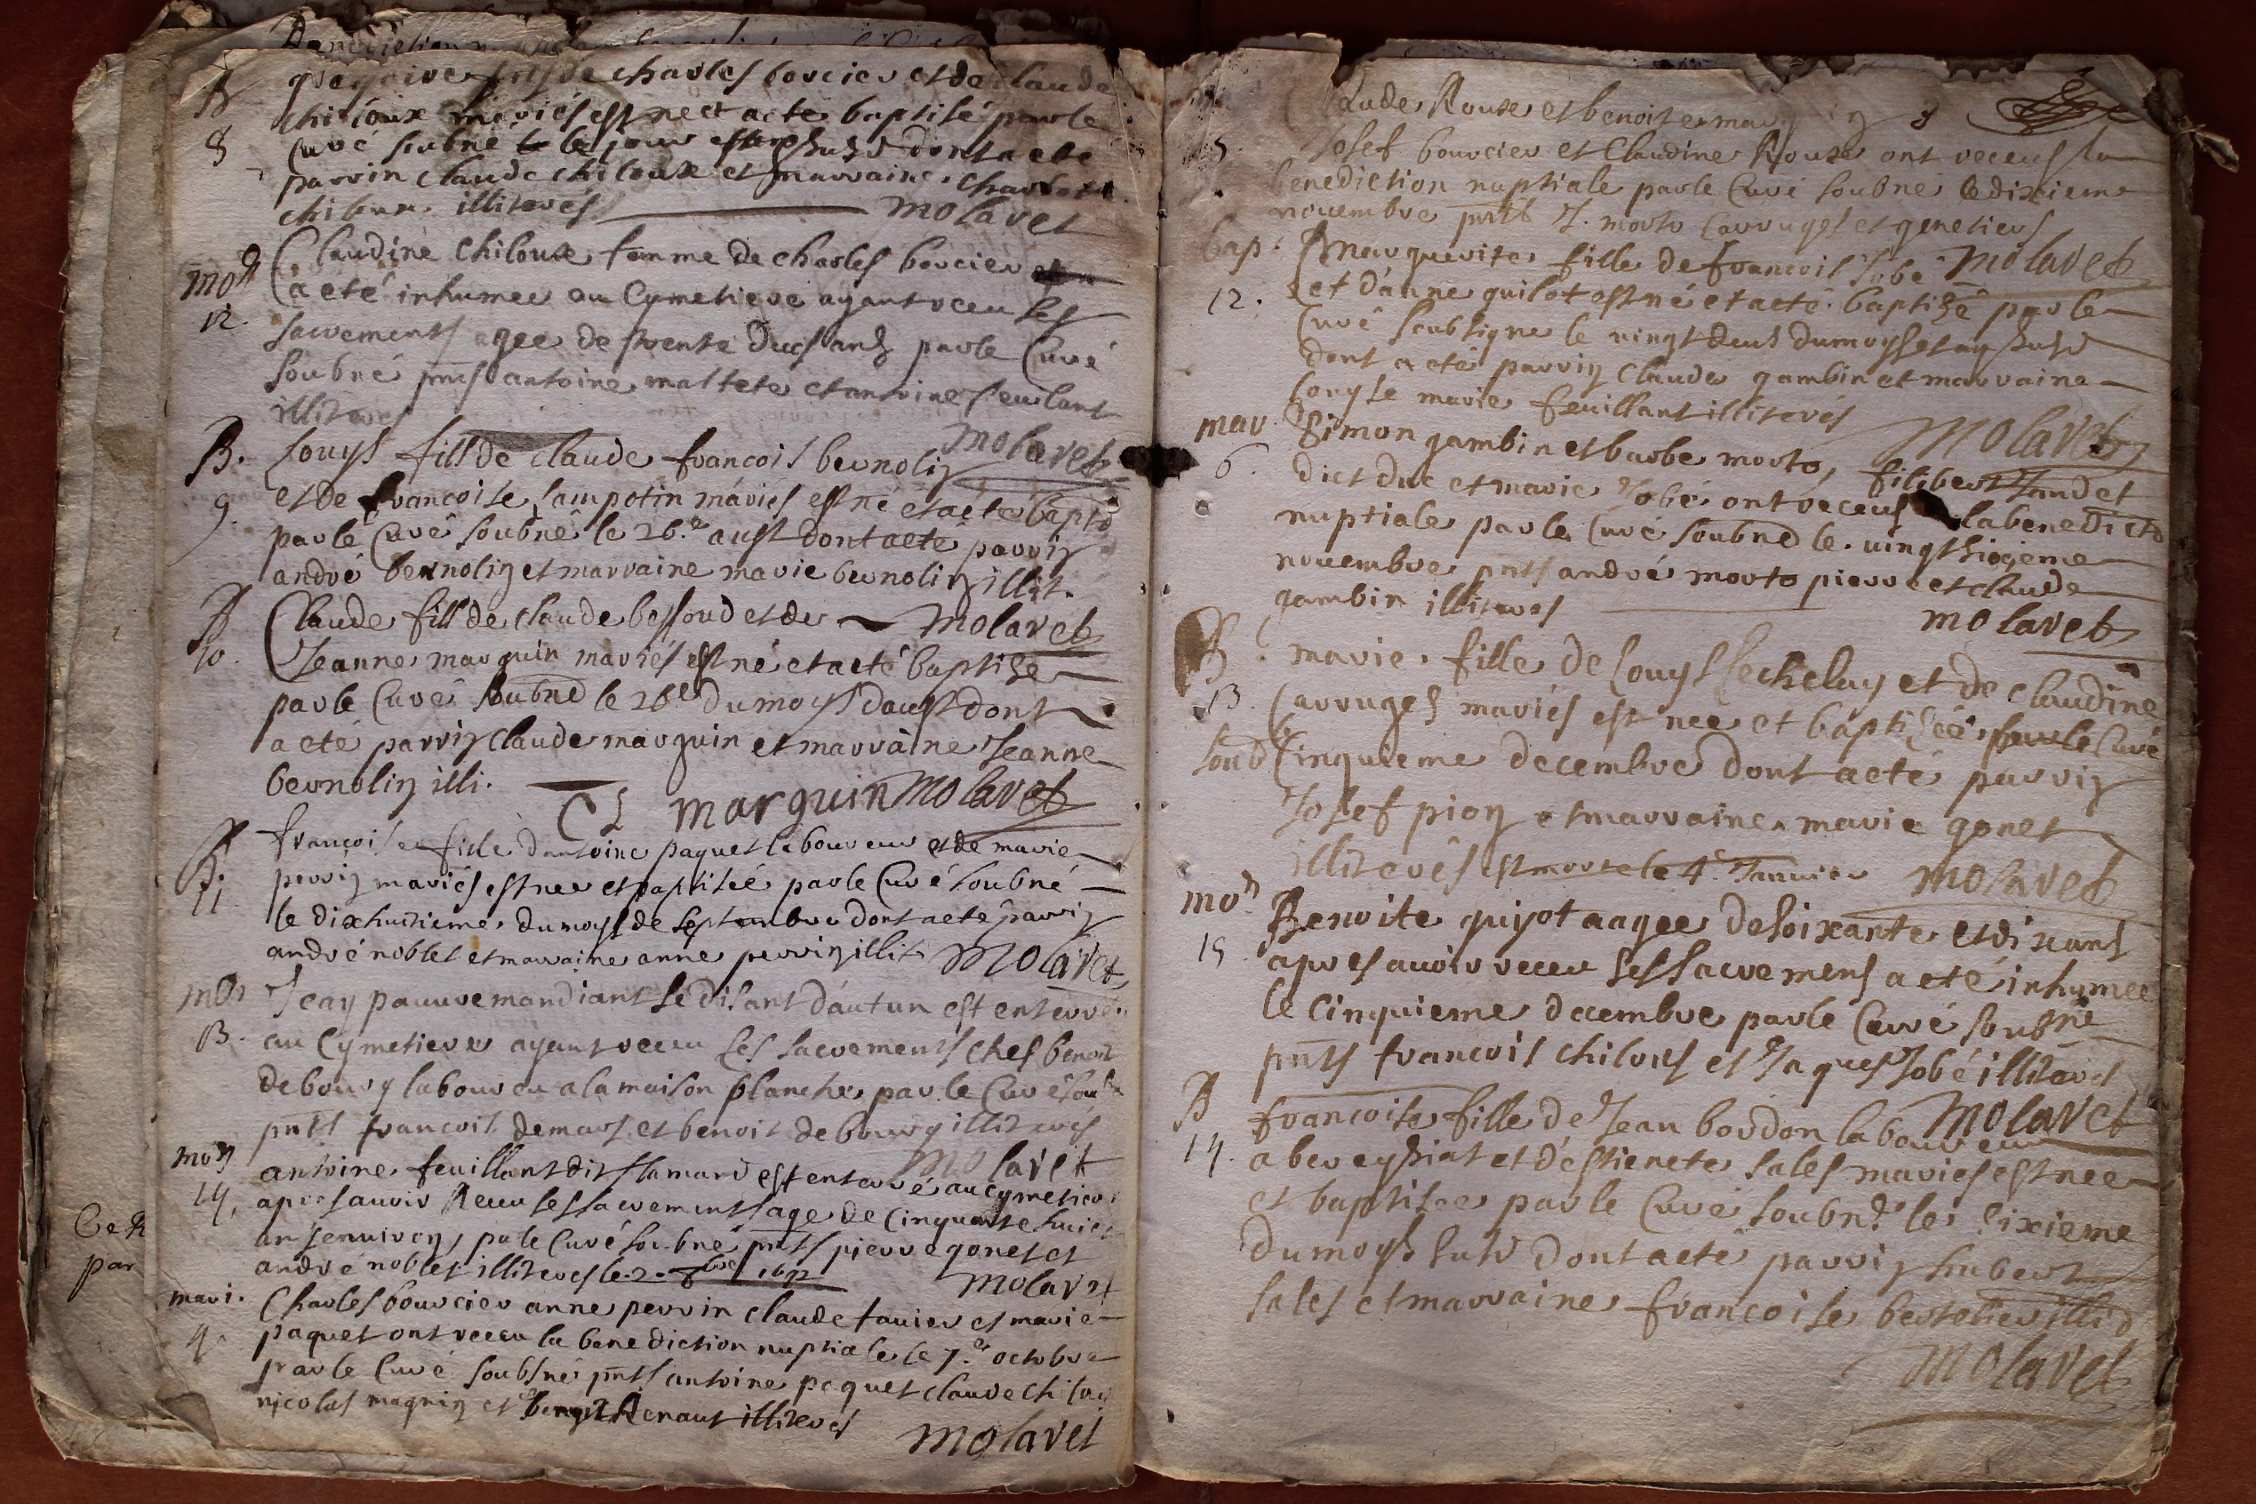 B
8
fils de charles borcier et de claude
chiloux mariés est né et a eté baptisé par le
Curé soubné le jour dont a eté
parrin claude chiloux et marraine
illiterés molaret
mor
12.
Claudine chiloux femme de charles borcier
a eté inhumee au Cymetiere ayant receu les
sacrements agee de trente ans par le Curé
soubné pnts antoine maltete et antoine feuilant
illiteres molaret
B.
9.
Louys fills de claude francois bernolin
et de francoise mariés est né et a eté bapt
par le Curé soubné le 26.e aust dont a eté parrin
andré bernolin et marraine marie bernolin illit.
molaret
B
10.
Claude fills de claude bessoud et de
Jeanne marguin mariés est né et a eté baptize
par le Curé soubné le 26e du moys daust dont
a eté parrin claude marguin et marraine Jeanne
bernolin illi.
Cl marguin molaret
B.
11
francoise fille dantoine paquet laboureur et de marie
perrin mariés est nee et baptisée par le Curé soubné
le dixhuitieme du moys de septembre dont a eté parrin
andré noblet et marraine anne perrin illit molaret
mor
13.
Jean pauure mandiant se disant dáutun est enterré
au Cymetiere ayant receu les sacrements ches benoit
debourg laboureu a la maison blanche par le Curé soub
pnts francois demars et benoit debourg illiterés
molaret
mor
14,
antoine feuillant dit flamard est enterré au cymetiere
apres auoir Receu les sacrements age de Cinquante huict
ans enuiron, par le Curé soubné pnts pierre gonet et
andre noblet illiteres le 2. 8bre 1692 molaret
mari.
4.
Charles bourcier anne perrin claude tauier et marie
paquet ont receu la benediction nuptiale le 7.e octobre
par le Curé soubsné pnts antoine paquet claude chiloux
nicolas magnin et benoit Renaut illiteres
molaret
Ce R
par
5.
Claude Rouse et benoite
Josef bourcier et Claudine Rouse ont receus la
benediction nuptiale par le Curé soubné le dixieme
nouembre pnts J. morto Carruges et genetiers
molaret
bap.
12.
Marguerite fille de francois Jobé
et d'anne guilot est né et a eté baptizé par le
Curé soubsigné le vingt deus du moys et an susd
dont a eté parrin Claude gambin et marraine
Louyse marie feuillant illiterés
molaret
mar
6.
Simon gambin et barbe morto, filibert Jandet
dict duc et marie Jobé ont receus la benedicto
nuptiale par le Curé soubné le vingtsixieme
nouembre pnts andré morto pierre et claude
gambin illiteres
molaret
B.
13.
marie fille de Louys Lechelay et de claudine
Carruges mariés est nee et baptizeé par le Curé
soub Cinquieme decembre dont a eté parrin
Josef pion et marraine marie gonet
illiterés est morte le 4e Janvier molaret
mor
15
Benoite guyot aagee de soixante et dix ans
apres auoir receu les sacremens a eté inhumee
le Cinquieme decembre par le Curé soubné
pnts francois chilous et Jaques Jobé illiteres
molaret
B
14.
francoise fille de Jean bordon laboureur
a bereysiat et d'estienete sales mariés est nee
et baptisee par le Curé soubné le sixieme
du moys susd dont a eté parrin hubert
sales et marraine francoise bertelier illit
molaret